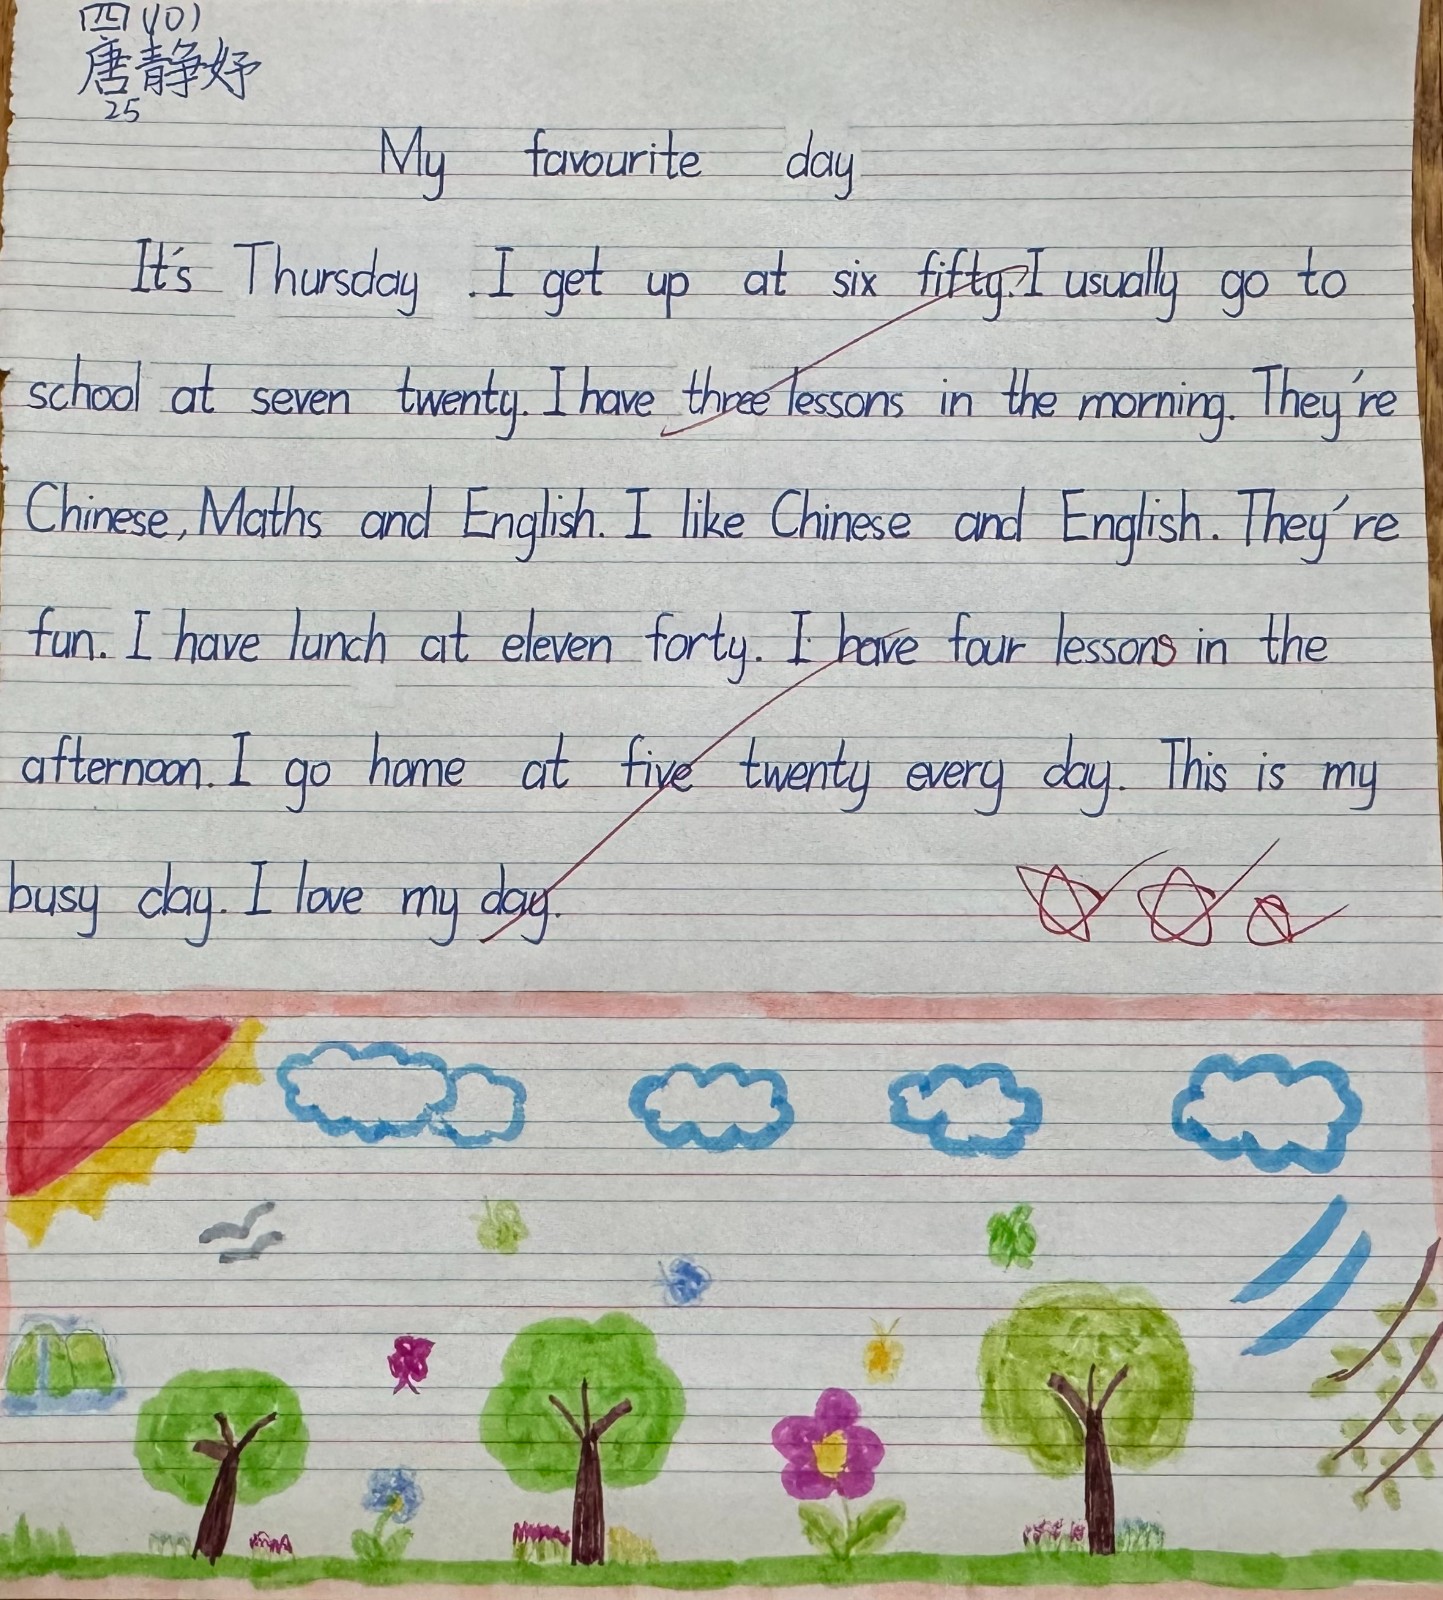 四(10)
唐静妤
25
My favourite day
It's Thursday. I get up at six fifty. I usually go to
school at seven twenty. I have three lessons in the morning. They're
Chinese, Maths and English. I like Chinese and English. They're
fun. I have lunch at eleven forty. I have four lessons in the
afternoon. I go home at five twenty every day. This is my
busy day. I love my day.